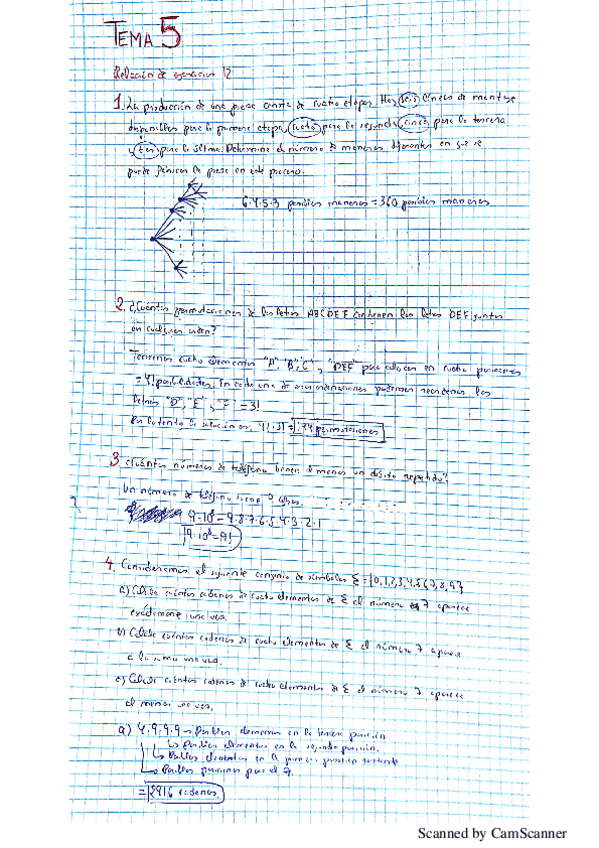 TEMA 5
Relación de ejercicios 12
1. La producción de una pieza consta de cuatro etapas. Hay seis líneas de montaje
disponibles para la primera etapa, cuatro para la segunda, cinco para la tercera
y tres para la última. Determine el número de maneras diferentes en que se
puede fabricar la pieza en este proceso.
6·4·5·3 posibles maneras = 360 posibles maneras
2. ¿Cuántas permutaciones de las letras ABCDEF contienen las letras DEF juntas
en cualquier orden?
Tenemos cuatro elementos "A", "B", "C", "DEF" para colocar en cuatro posiciones
= 4! posibilidades. En cada una de podríamos reordenar las
letras "D", "E", "F" = 3!
Por lo tanto la solución es 4!·3! = 144 permutaciones
3. ¿Cuántos números de teléfono tienen al menos un dígito repetido?
Un número de teléfono tiene 9 cifras.
9·10⁸ - 9·8·7·6·5·4·3·2·1
9·10⁸ - 9!
4. Consideremos el siguiente conjunto de símbolos Σ = {0,1,2,3,4,5,6,7,8,9}
a) Calcule cuántas cadenas de cuatro elementos de Σ el número 7 aparece
exactamente una vez.
b) Calcule cuántas cadenas de cuatro elementos de Σ el número 7 aparece
a lo sumo una vez.
c) Calcule cuántas cadenas de cuatro elementos de Σ el número 7 aparece
al menos una vez.
a) 4·9·9·9 → Posibles elementos en la tercera posición
↳ Posibles elementos en la segunda posición.
↳ Posibles elementos en la primera posición restante
↳ Posibles posiciones para el 7.
= 2916 cadenas.
Scanned by CamScanner